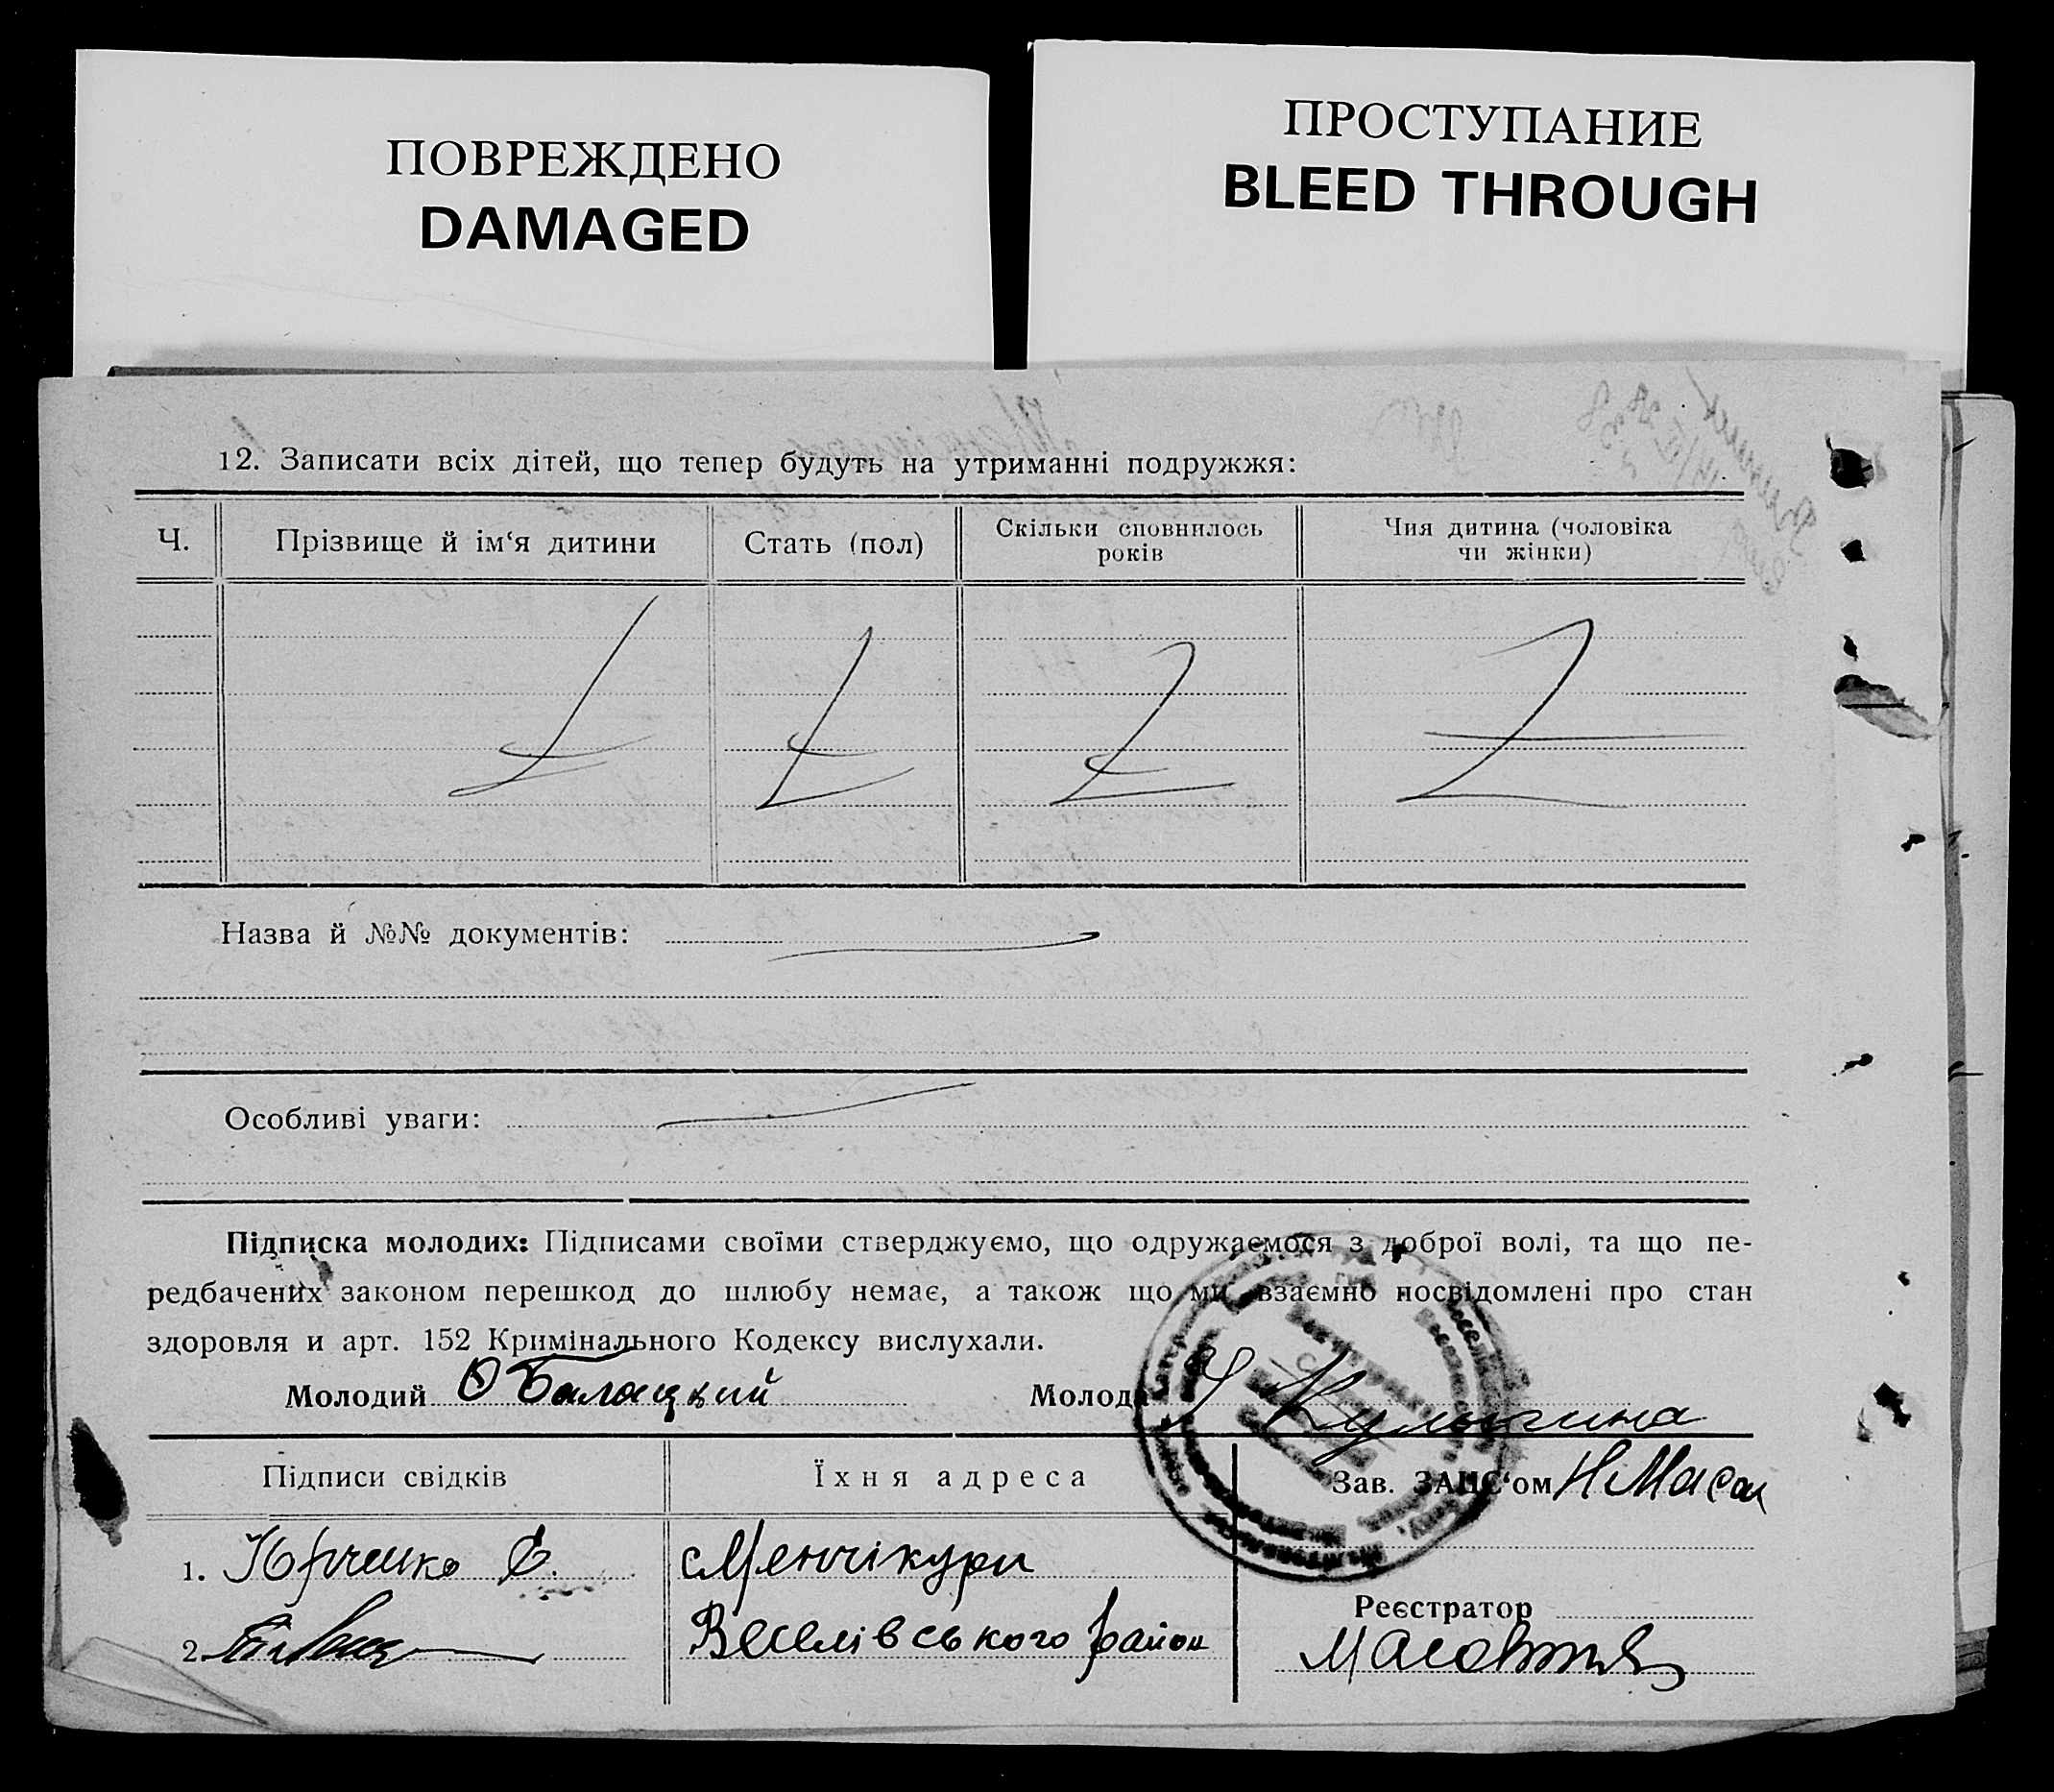 ПОВРЕЖДЕНО
DAMAGED
ПРОСТУПАНИЕ
BLEED THROUGH
12. Записати всіх дітей, що тепер будуть на утриманні подружжя:
Ч.
Прізвище й ім‘я дитини
Стать (пол)
Скільки сповнилось
років
Чия дитина (чоловіка
чи жінки)
Назва й №№ документів:
Особливі уваги:
Підписка молодих: Підписами своїми стверджуємо, що одружаємося з доброї волі, та що пе-
редбачених законом перешкод до шлюбу немає, а також що ми взаємно посвідомлені про стан
здоровля и арт. 152 Кримінального Кодексу вислухали.
Молодий О Балацький
Молода Кулыгина
Підписи свідків
Їхня адреса
Зав. ЗАЦС‘ом Н Маса
1. Юрченко Є.
с Менчікури
2.
Веселівського район
Реєстратор